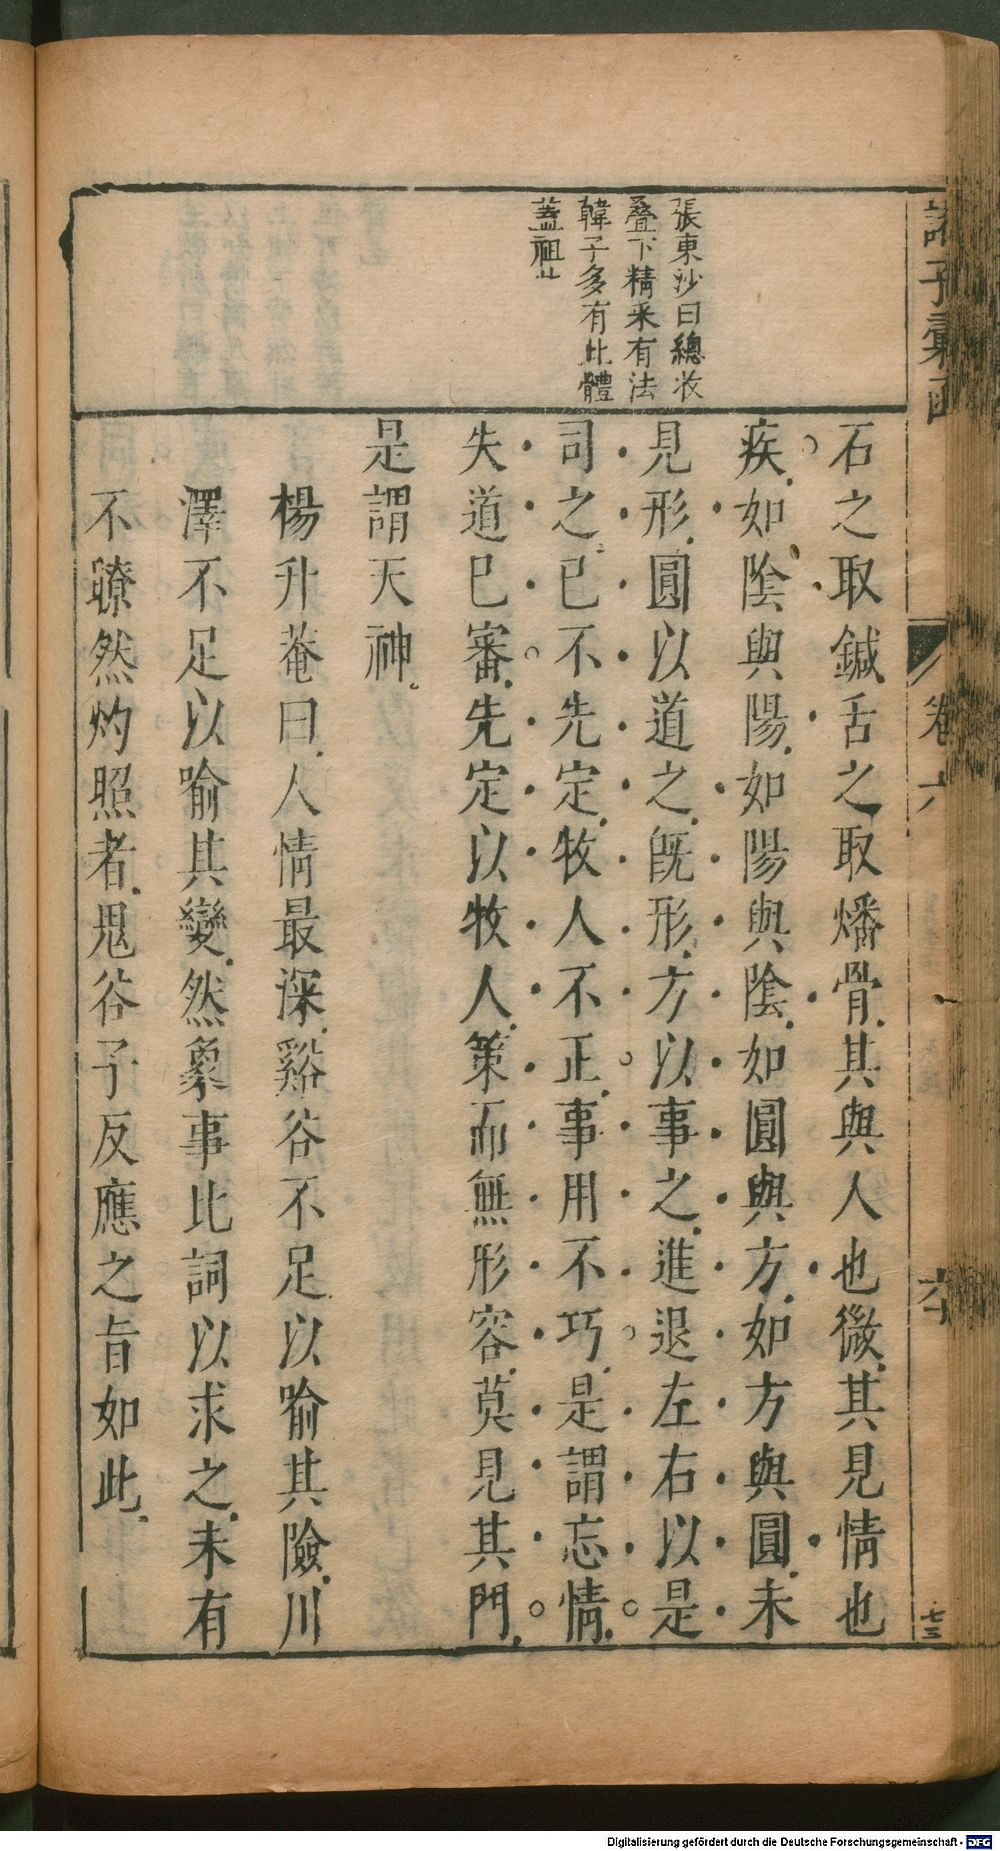 諸子彙函
卷六
六
七三
張東沙曰總收
疊下精采有法
韓子多有此體
蓋祖此
石之取鍼舌之取燔骨其與人也微其見情也
疾如陰與陽如陽與陰如圓與方如方與圓未
見形圓以道之旣形方以事之進退左右以是
司之已不先定牧人不正事用不巧是謂忘情
失道已審先定以牧人策而無形容莫見其門
是謂天神
楊升菴曰人情最深谿谷不足以喻其險川
澤不足以喻其變然象事比詞以求之未有
不瞭然灼照者鬼谷子反應之旨如此
Digitalisierung gefördert durch die Deutsche Forschungsgemeinschaft - DFG